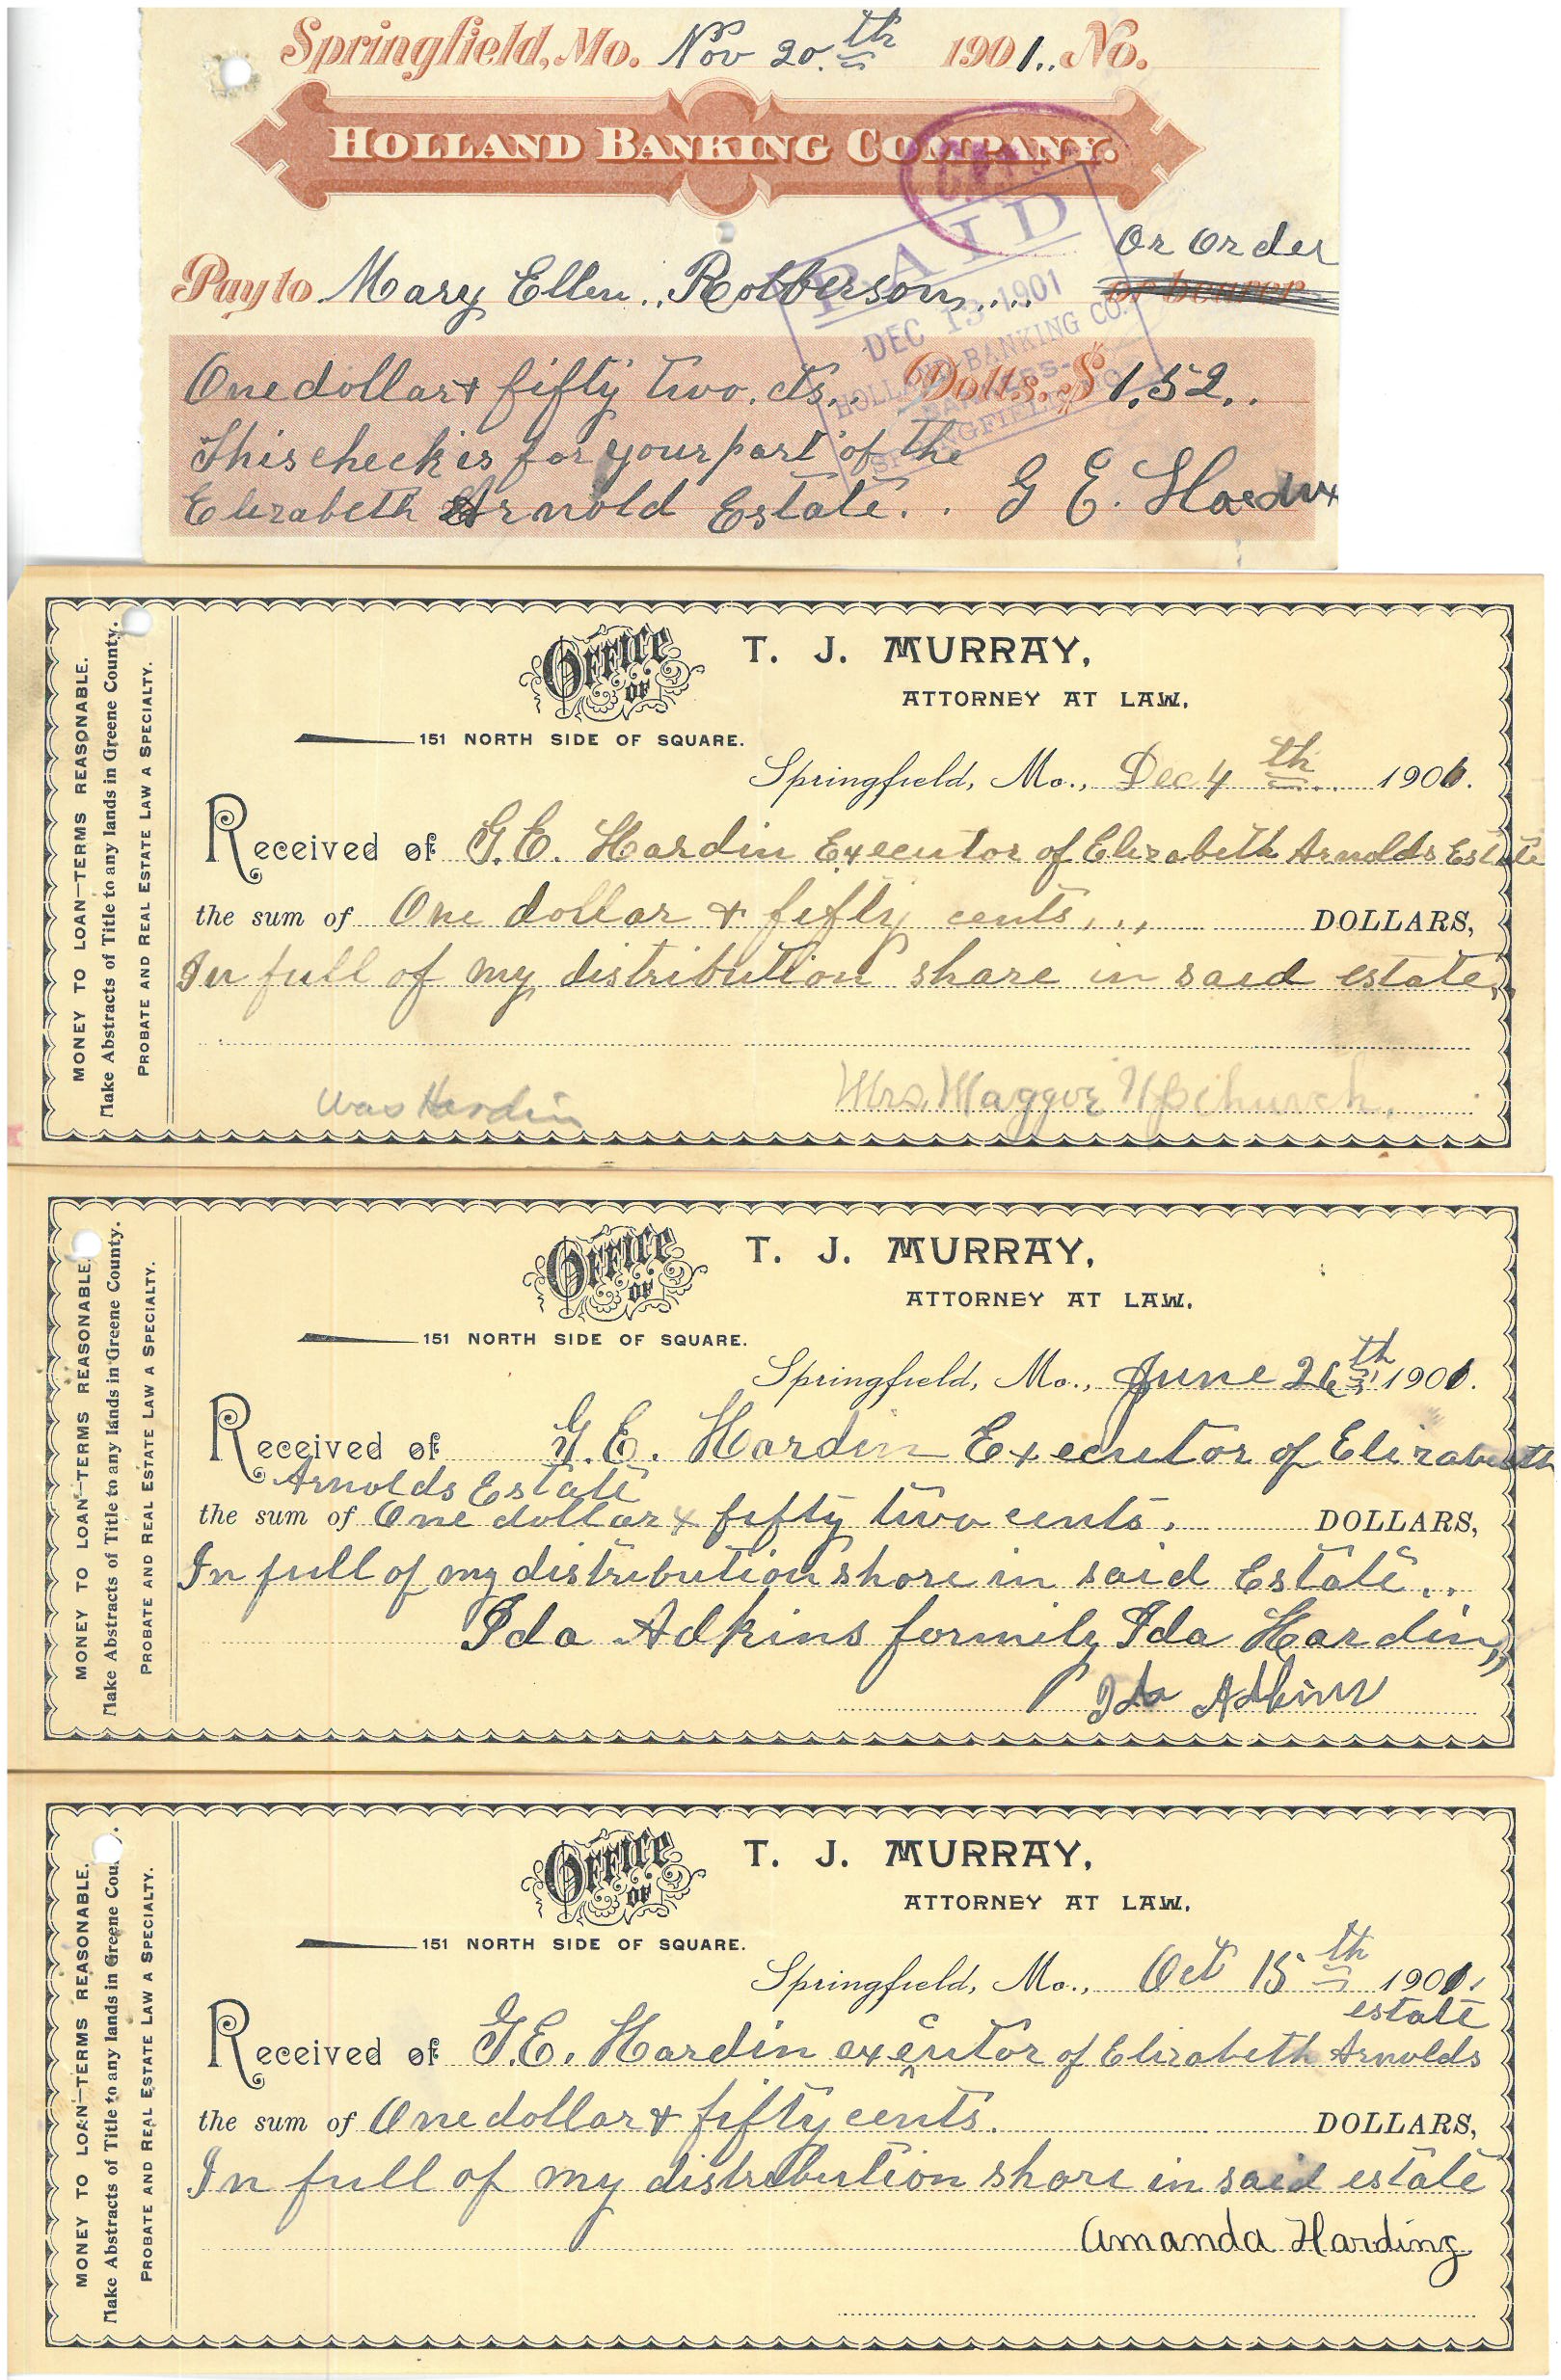 Springfield, Mo. Nov 20.th 1901.. No.
HOLLAND BANKING COMPANY.
PAID
DEC 13 1901
HOLLAND BANKING CO.
BANKERS-
SPRINGFIELD, MO.
or order
Pay to Mary Ellen.. Robberson.... or bearer
One dollar + fifty two. cts.. Dolls. $ 1.52..
This check is for your part of the
Elizabeth Arnold Estate. . G E. Hardin
MONEY TO LOAN—TERMS REASONABLE.
Make Abstracts of Title to any lands in Greene County.
PROBATE AND REAL ESTATE LAW A SPECIALTY.
OFFICE OF T. J. MURRAY,
ATTORNEY AT LAW.
151 NORTH SIDE OF SQUARE.
Springfield, Mo., Dec 4th 1901.
Received of G.E. Hardin Executor of Elizabeth Arnolds Estate
the sum of One dollar + fifty cents... DOLLARS,
In full of my distribution share in said estate,
was Hardin Mrs. Maggie Upchurch.
MONEY TO LOAN—TERMS REASONABLE.
Make Abstracts of Title to any lands in Greene County.
PROBATE AND REAL ESTATE LAW A SPECIALTY.
OFFICE OF T. J. MURRAY,
ATTORNEY AT LAW.
151 NORTH SIDE OF SQUARE.
Springfield, Mo., June 26th 1901.
Received of G.E. Hardin Executor of Elizabeth
Arnolds Estate
the sum of One dollar + fifty two cents. DOLLARS,
In full of my distribution share in said Estate..
Ida Adkins formily Ida Hardin,,
Ida Adkins
MONEY TO LOAN—TERMS REASONABLE.
Make Abstracts of Title to any lands in Greene Cou .
PROBATE AND REAL ESTATE LAW A SPECIALTY.
OFFICE OF T. J. MURRAY,
ATTORNEY AT LAW.
151 NORTH SIDE OF SQUARE.
Springfield, Mo., Oct 15th 1901.
estate
Received of G.E. Hardin execútor of Elizabeth Arnolds
the sum of One dollar + fifty cents. DOLLARS,
In full of my distribution share in said estate
Amanda Harding